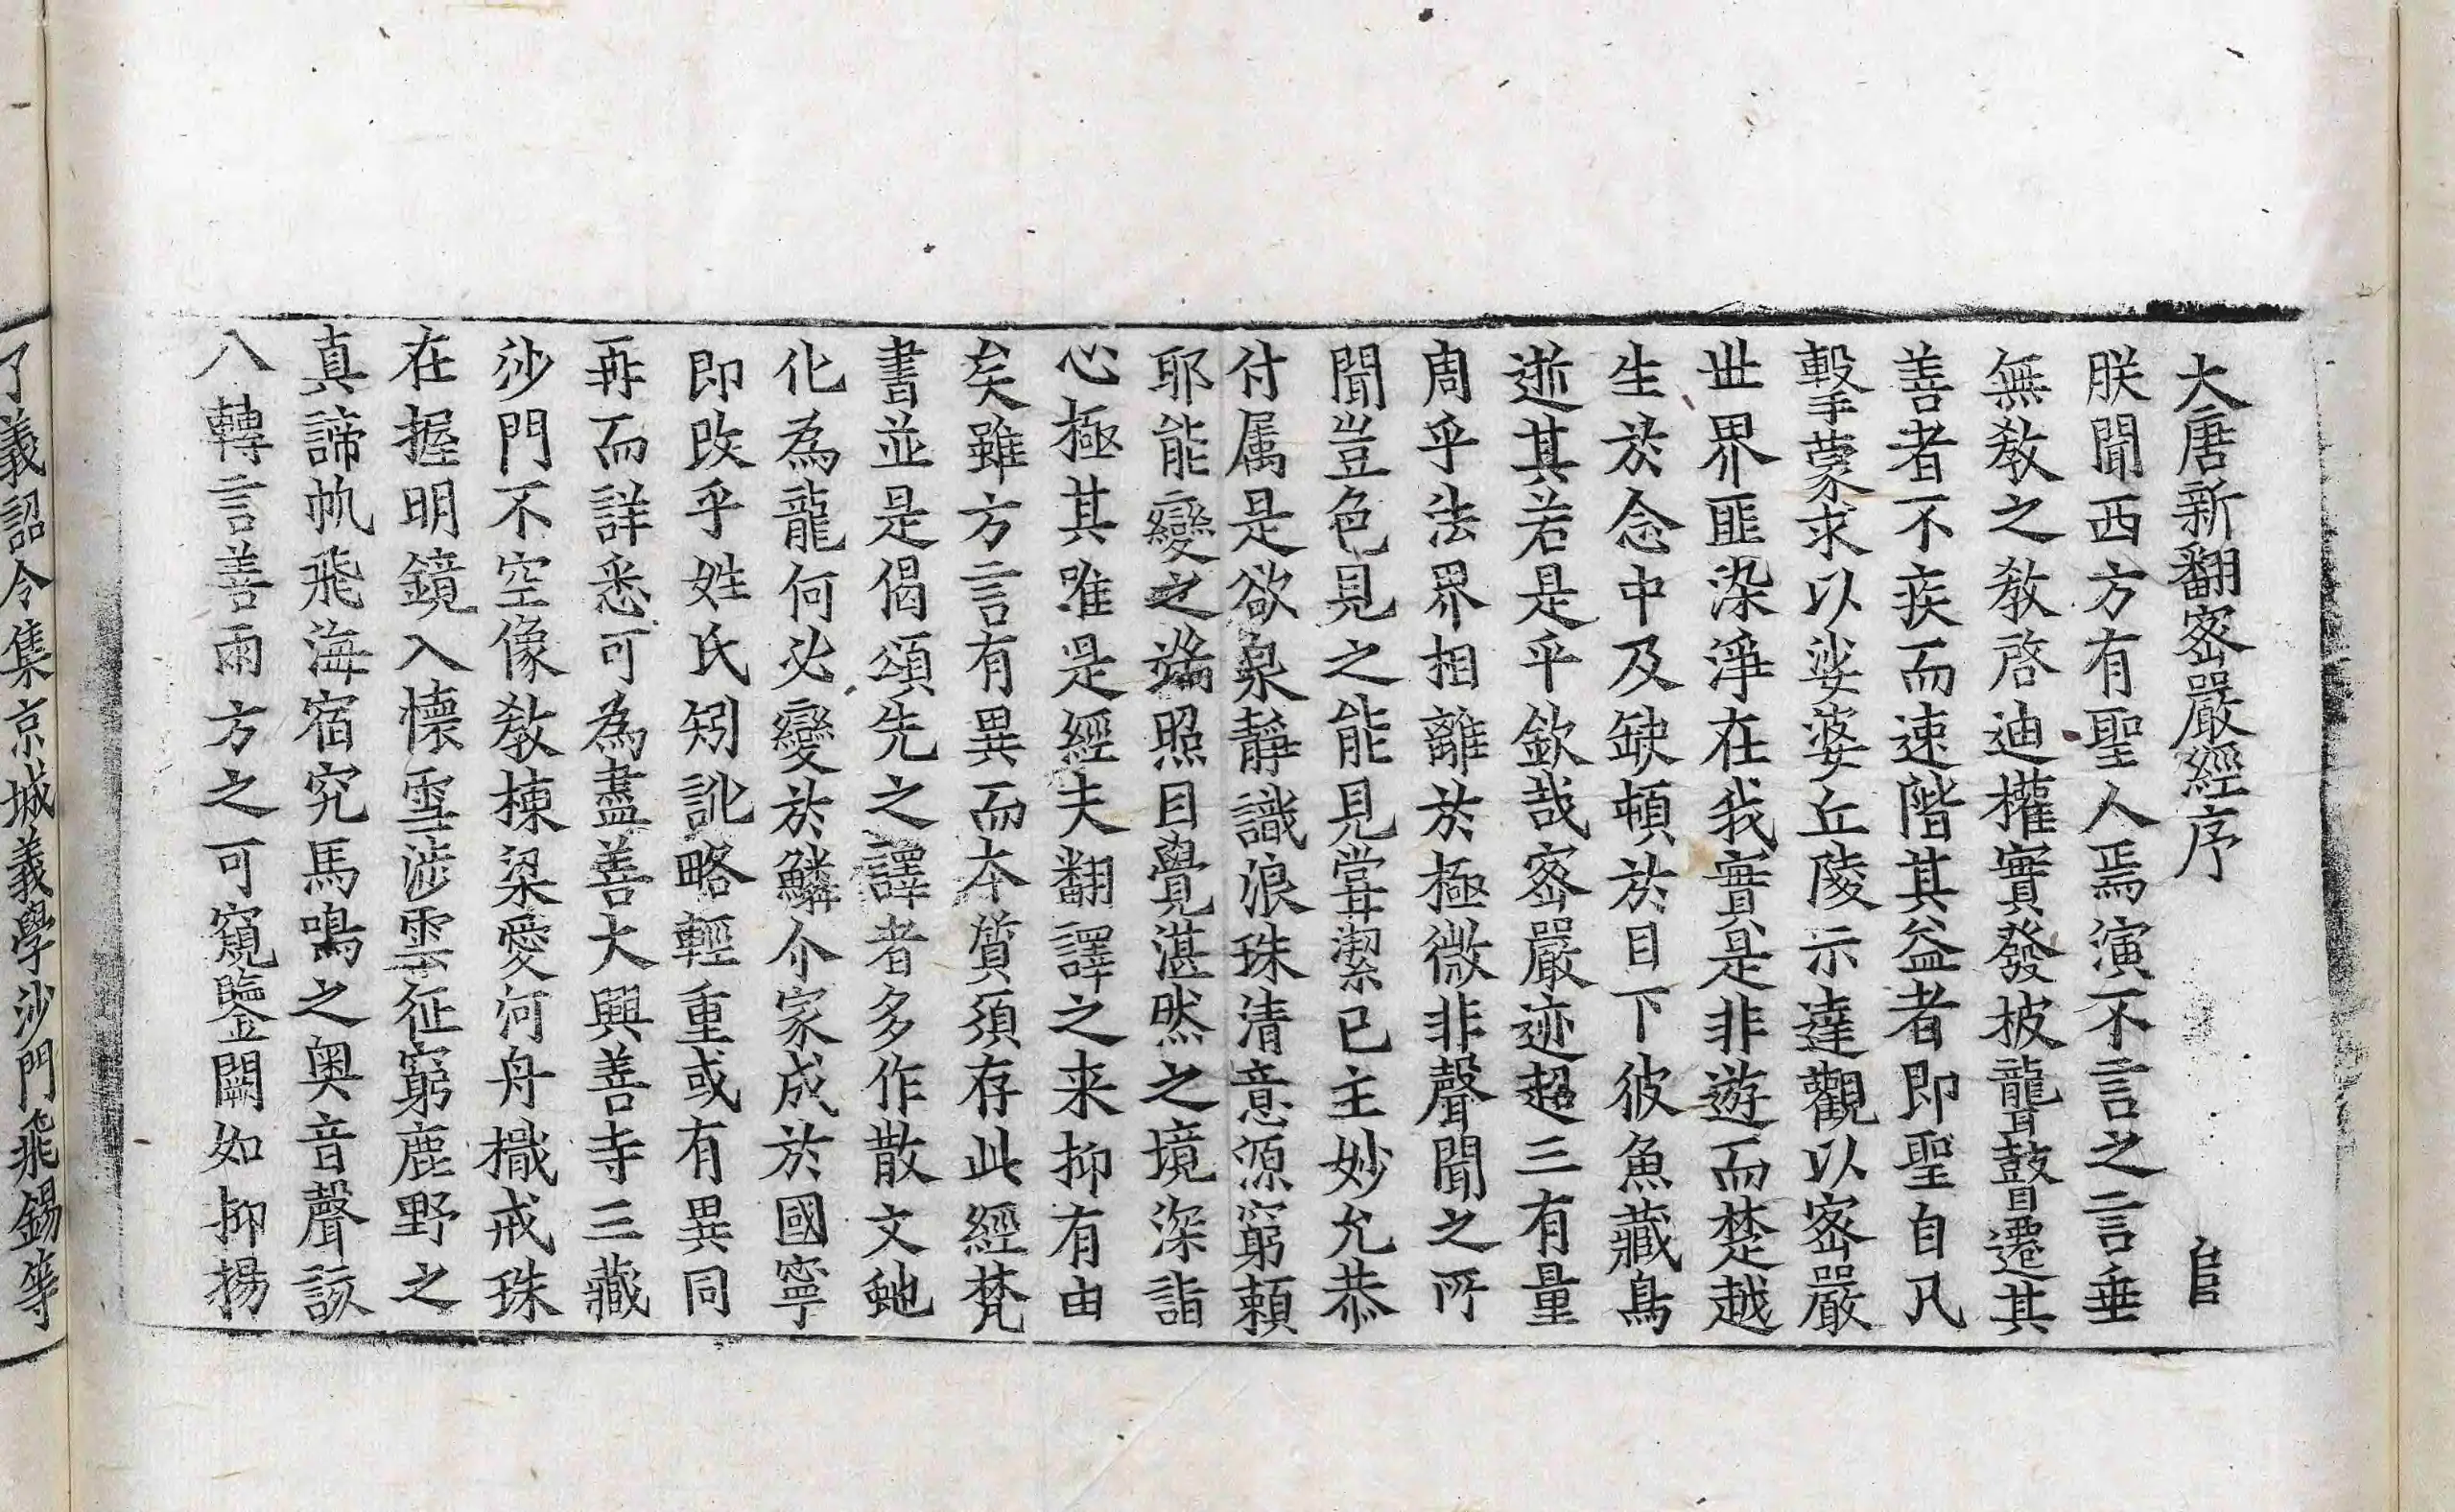 大唐新翻密嚴經序
朕聞西方有聖人焉演不言之言垂
無教之教啓迪權實發披聾瞽遷其
善者不疾而速階其益者即聖自凡
擊蒙求以娑婆丘陵示達觀以密嚴
世界匪染淨在我實是非遊而楚越
生於念中及缺頓於目下彼魚藏鳥
逝其若是乎欽哉密嚴迹超三有量
周乎法界相離於極微非聲聞之所
聞豈色見之能見甞潔己至妙允恭
付属是欲泉靜識浪珠清意源窮賴
耶能變之端照自覺湛然之境深詣
心極其唯是經夫翻譯之来抑有由
矣雖方言有異而本質須存此經梵
書並是偈頌先之譯者多作散文虵
化為龍何必變於鱗介家成於國寧
即改乎姓氏矧訛略輕重或有異同
再而詳悉可為盡善大興善寺三藏
沙門不空像教棟梁愛河舟檝戒珠
在握明鏡入懷雪涉雲征窮鹿野之
真諦帆飛海宿究馬鳴之奥音聲該
八轉言善兩方之可窺鑒闕如抑揚
了義詔令集京城義學沙門飛錫等